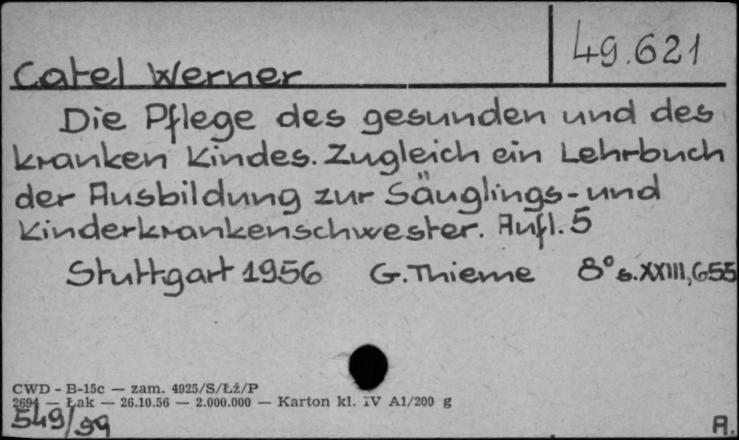 49.621
Catel Werner
Die Pflege des gesunden und des
kranken Kindes. Zugleich ein Lehrbuch
der Ausbildung zur Säuglings- und
Kinderkrankenschwester. Aufl. 5
Stuttgart 1956 G. Thieme 8° s. XXIII, 655
CWD - B-15c — zam. 4925/S/Łź/P
2694 — Łak — 26.10.56 — 2.000.000 — Karton kl. IV A1/200 g
549/99
A.